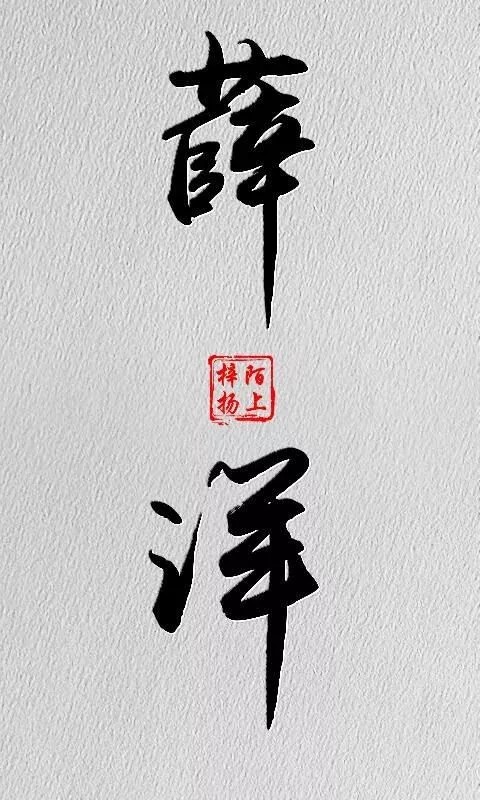 薛
陌上
梓扬
洋